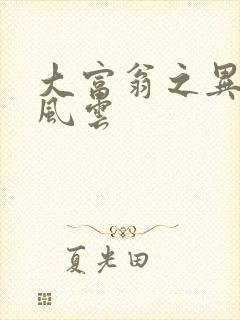 大富翁之異
風雲
夏光田